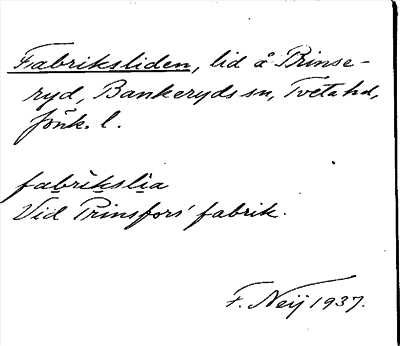 Fabriksliden, lid å Prinse-
ryd, Bankeryds sn, Tveta hd,
Jönk. l.
fabrikslia
Vid Prinsfors' fabrik.
F. Neij 1937.